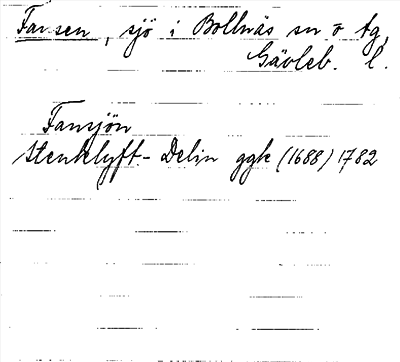 Fansen, sjö i Bollnäs sn o tg,
Gävleb. l.
Fansjön
Stenklyft-Delin ggk (1688) 1782